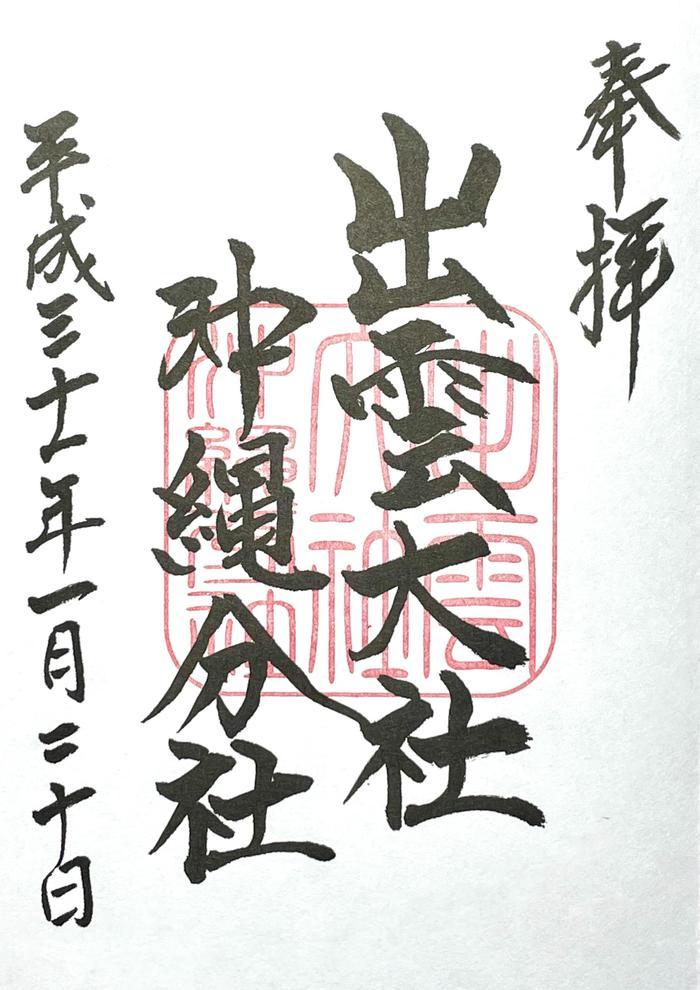 奉拝
出雲大社
沖縄分社
平成三十一年一月二十日
出雲
大社